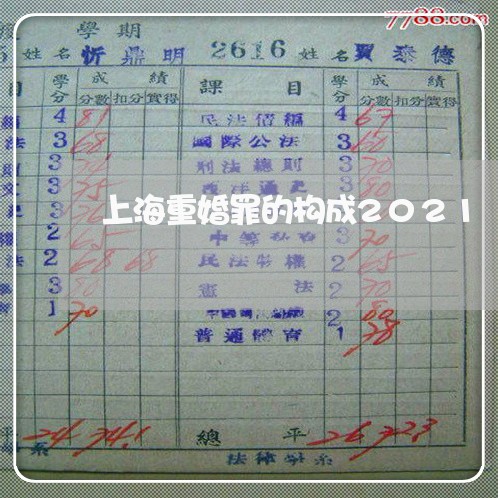 7788.com
學期
姓名 忻鼎明 2616 姓名 賈泰德
目 學分 成績 課目 學分 成績
分數 扣分 實得 分數 扣分 實得
4 81 民法債編 4 67
法 3 68 國際公法 3 60
3 刑法總則 3 70
文 3 75 3 80
上海重婚罪的构成2021
2 65 3 70
法 2 68 68 民法物權 2 65
3 80 憲法 2 70
1 70 2 80
普通體育 1 78
平 24 74.1 總平 26 72.3
系 法律學系